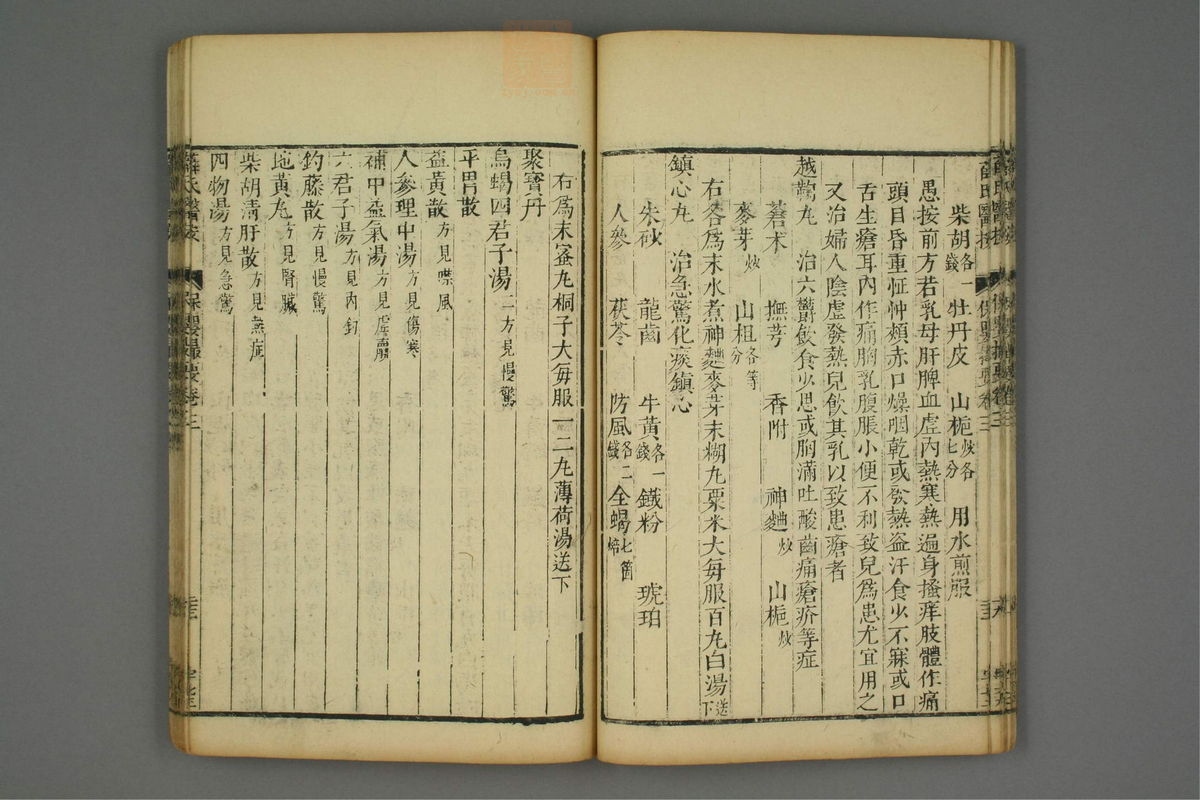 柴胡各一錢 牡丹皮 山梔炒各七分 用水煎服
愚按前方若乳母肝脾血虛內熱寒熱遍身搔痒肢體作痛
頭目昏重怔忡頰赤口燥咽乾或發熱盗汗食少不寐或口
舌生瘡耳內作痛胸乳腹脹小便不利致兒爲患尤宜用之
又治婦人陰虛發熱兒飲其乳以致患瘡者
越鞠丸 治六鬱飲食少思或胸滿吐酸齒痛瘡疥等症
蒼术 撫芎 香附 神麯炒 山梔炒
麥芽炒 山柤各等分
右各爲末水煮神麯麥芽末糊丸粟米大每服百丸白湯送下
鎮心丸 治急驚化痰鎮心
朱砂 龍齒 牛黃各一錢 鐵粉 琥珀
人參 茯苓 防風各二錢 全蝎七箇焙
右爲末蜜丸桐子大每服一二丸薄荷湯送下
聚寶丹
烏蝎四君子湯二方見慢驚
平胃散
益黃散方見噤風
人參理中湯方見傷寒
補中益氣湯方見虛羸
六君子湯方見內釣
釣藤散方見慢驚
地黃丸方見腎臟
柴胡清肝散方見熱症
四物湯方見急驚
薛氏醫按 保嬰撮要卷三